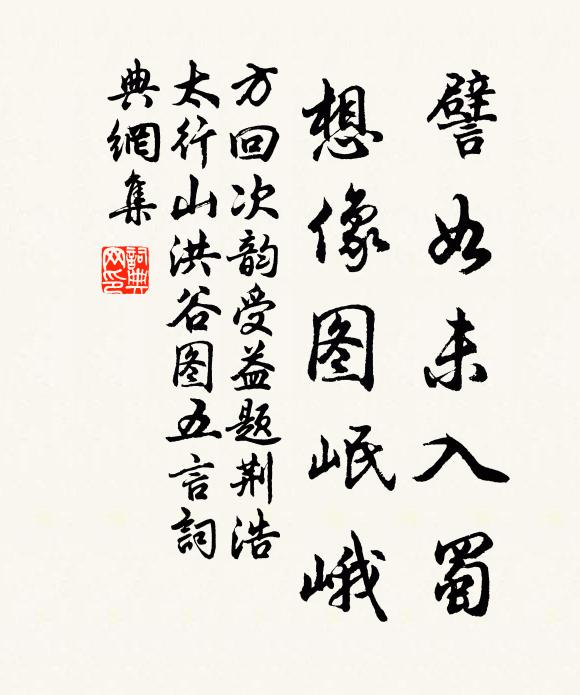 譬如未入蜀
想像图岷峨
方回次韵受益题荆浩
太行山洪谷图五言詞
典網集
詞典
网印